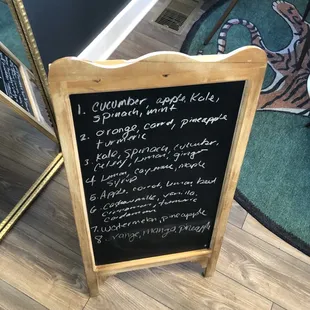 1. Cucumber, apple, Kale,
spinach, mint
2. orange, carrot, pineapple
turmeric
3. Kale, Spinach, cucumber
Celery, Lemon, ginger
4. Lemon, cayenne, maple
syrup
5. Apple, carrot, lemon, beet
6. Cashew milk, vanilla,
Cinnamon, turmeric
Cardamom
7. Watermelon, pineapple
8. orange, mango, pineapple